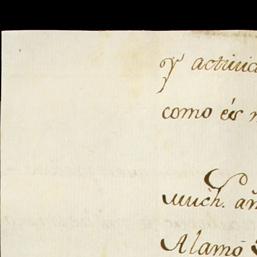 y activid
como es
much. añ
Alamó